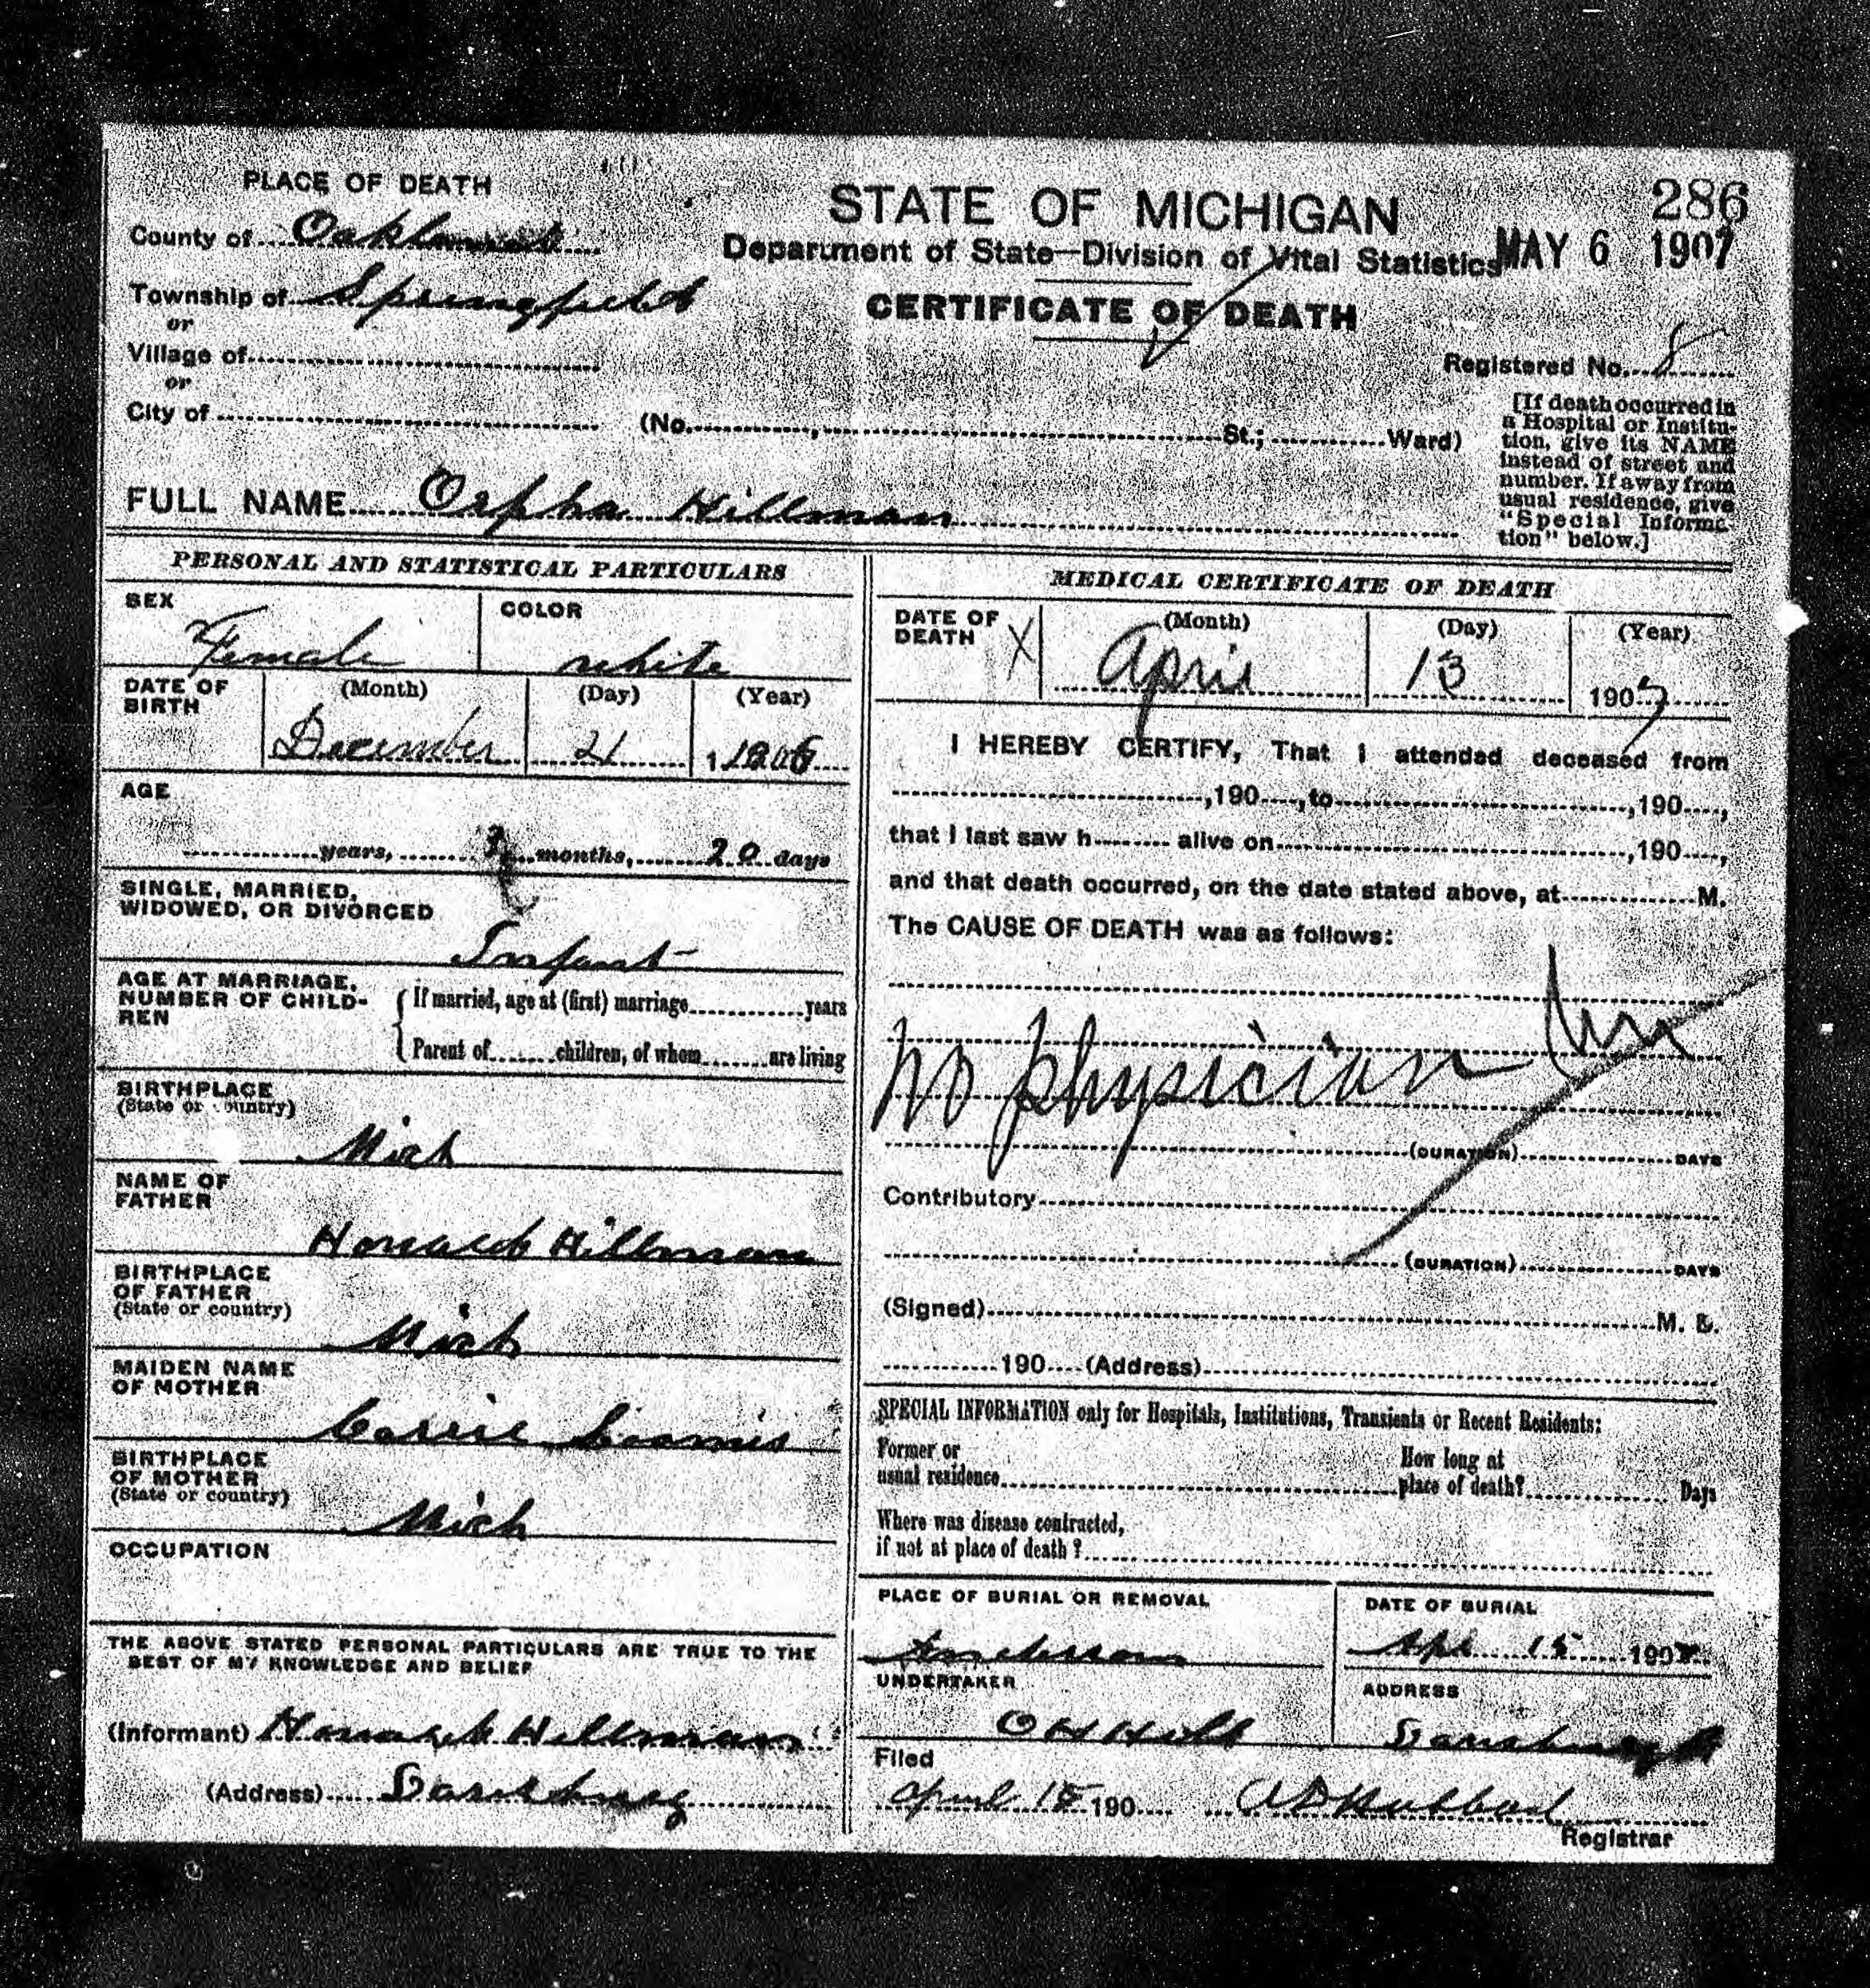 PLACE OF DEATH
County of Oakland
Township of Springfield
or
Village of
or
City of
STATE OF MICHIGAN
Department of State—Division of Vital Statistics
CERTIFICATE OF DEATH
286
MAY 6 1907
Registered No. 8
(No. , St.; Ward)
[If death occurred in
a Hospital or Institu-
tion, give its NAME
instead of street and
number. If away from
usual residence, give
"Special Informa-
tion" below.]
FULL NAME Orpha Hillman
PERSONAL AND STATISTICAL PARTICULARS
SEX
Female
COLOR
white
DATE OF
BIRTH
(Month) (Day) (Year)
December 21 1 1906
AGE
years, months, 20 days
SINGLE, MARRIED,
WIDOWED, OR DIVORCED
Infant
AGE AT MARRIAGE,
NUMBER OF CHILD-
REN
If married, age at (first) marriage years
Parent of children, of whom are living
BIRTHPLACE
(State or country)
Mich
NAME OF
FATHER
Hillman
BIRTHPLACE
OF FATHER
(State or country)
Mich
MAIDEN NAME
OF MOTHER
Carrie Loomis
BIRTHPLACE
OF MOTHER
(State or country)
Mich
OCCUPATION
THE ABOVE STATED PERSONAL PARTICULARS ARE TRUE TO THE
BEST OF MY KNOWLEDGE AND BELIEF
(Informant) Hillman
(Address)
MEDICAL CERTIFICATE OF DEATH
DATE OF
DEATH X
(Month) (Day) (Year)
April 13 1907
I HEREBY CERTIFY, That I attended deceased from
, 190 , to , 190 ,
that I last saw h alive on , 190 ,
and that death occurred, on the date stated above, at M.
The CAUSE OF DEATH was as follows:
no physician
(DURATION) DAYS
Contributory
(DURATION) DAYS
(Signed) M. D.
190 (Address)
SPECIAL INFORMATION only for Hospitals, Institutions, Transients or Recent Residents:
Former or
usual residence
How long at
place of death? Days
Where was disease contracted,
if not at place of death?
PLACE OF BURIAL OR REMOVAL
DATE OF BURIAL
Apr 15 1907
UNDERTAKER
O H Hill
ADDRESS
Filed
April 15 190 A D Hubbard
Registrar